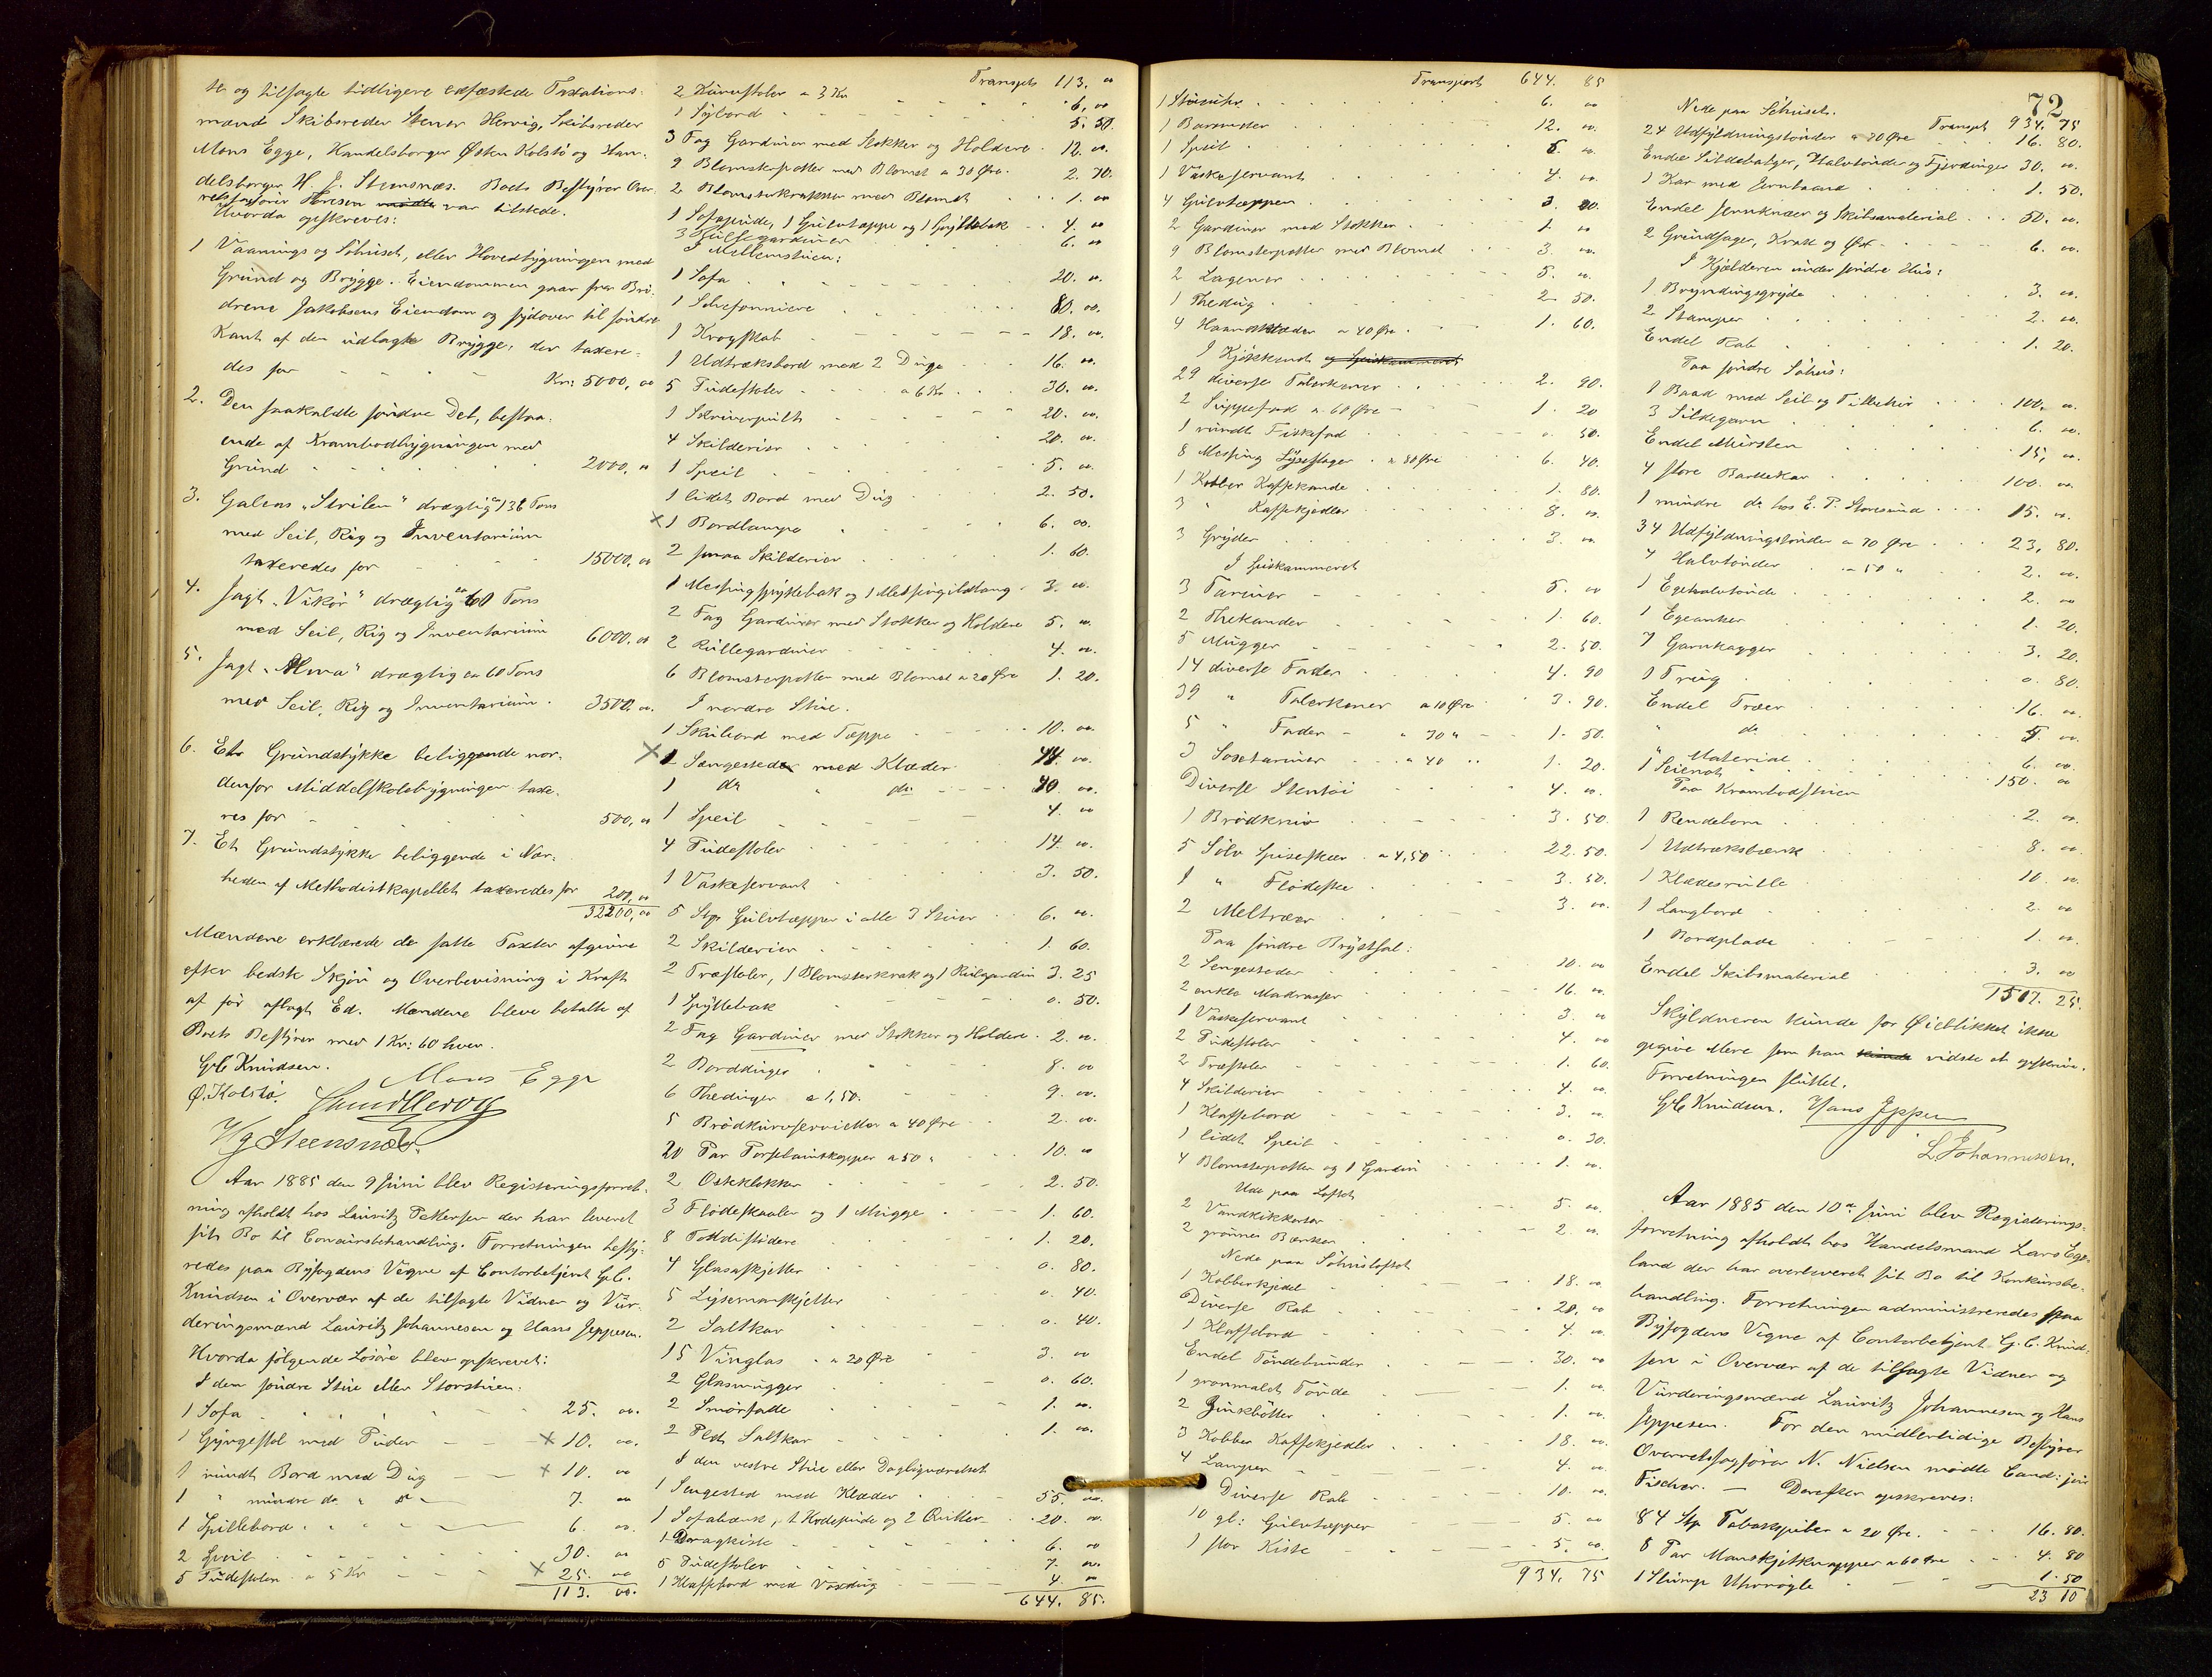 te og tilsagte tidligere edfæstede Taxations-
mænd Skibsreder Stener Hervig, Skibsreder
Mons Egge, Handelsborger Østen Kolstø og Han-
delsborger H. J. Steensnæs. Boets Bestyrer Over-
retssagfører Næresen mödte var tilstede.
Hvorda opskreves:
1 Vaanings og Söhuset, eller Hovedbygningen med
Grund og Brygge. Eiendommen gaar fra Brö-
drene Jakobsens Eiendom og sydover til søndre
Kant af den udlagte Brygge, der taxere-
des for Kr: 5000,00
2. Den saakaldte søndre Del, bestaa-
ende af Krambodbygningen med
Grund 2000,00
3. Galeas "Strilen" drægtig ca 136 Tons
med Seil, Rig og Inventarium
taxeredes for 15000,00
4. Jagt "Vikør" drægtig ca 60 Tons
med Seil, Rig og Inventarium 6000.00
5. Jagt "Alma" drægtig ca 60 Tons
med Seil, Rig og Inventarium. 3500.00
6. Et Grundstykke beliggende nor-
denfor Middelskolebygningen taxe-
res for 500,00
7. Et Grundstykke beliggende i Nær-
heden af Methodistkapellet taxeredes for 200,00
32200,00
Mændene erklærede de satte Taxter afgivne
efter bedste Skjøn og Overbevisning i Kraft
af før aflagt Ed. Mændene bleve betalte af
Boets Bestyrer med 1 Kr: 60 hver.
G.C. Knudsen. Mons Egge
Ø. Kolstø.
Hg Steensnæs.
Aar 1885 den 9 Juni blev Registreringsforret-
ning afholdt hos Lauritz Pettersen der har leveret
sit Bo til Concursbehandling. Forretningen besty-
redes paa Byfogdens Vegne af Contorbetjent G.C.
Knudsen i Overvær af de tilsagte Vidner og Vur-
deringsmænd Lauritz Johannesen og Hans Jeppesen.
Hvorda følgende Løsøre blev opskrevet:
I den søndre Stue eller Storstuen:
1 Sofa 25. 00.
1 Gyngestol med Puder x 10. 00.
1 rundt Bord med Dug x 10. 00
1 " mindre do " do 7. 00
1 Spillebord 6. 00.
2 Speil 30. 00
5 Pudestolen a 5 Kr x 25. 00
113. 00.
Transport 113. 00
2 Kurvstoler a 3 Kr 6. 00
1 Sybord 5. 50.
3 Fag Gardiner med Stokker og Holdere 12. 00.
9 Blomsterpotter med Blomst a 30 Øre 2. 70.
2 Blomsterkrakker med Blomst 1. 00
1 Sofapude, 1 Gulvtæppe og 1 Spyttebak 4. 00
3 Rullegardiner 6. 00
I Mellemstuen:
1 Sofa 20. 00.
1 Scheffoniere 80. 00.
1 Krogskab 18. 00.
1 Udtræksbord med 2 Duge 16. 00.
5 Pudestoler a 6 Kr 30. 00.
1 Skriverpult 20. 00.
4 Skilderier 20. 00.
1 Speil 5. 00.
1 lidet Bord med Dug 2. 50.
x 1 Bordlampe 6. 00.
2 smaa Skilderier 1. 60.
1 Messingspyttebak og 1 Messingildtang 3. 00.
2 Fag Gardiner med Stokker og Holdere 5. 00.
2 Rullegardiner 4. 00.
6 Blomsterpotter med Blomst a 20 Øre 1. 20.
I nordre Stue.
1 Skuibord med Tæppe 10. 00.
x 1 Sengested med Klæder 44. 00.
1 do " do 40. 00.
1 Speil 4. 00
4 Pudestoler 14. 00.
1 Vaskeservant 3. 50.
5 Stkr Gulvtæpper i alle 3 Stuer 6. 00.
2 Skilderier 1. 60.
2 Træstoler, 1 Blomsterkrak og 1 Rulgardin 3. 25
1 Spyttebak 0. 50.
2 Fag Gardiner med Stokker og Holdere 2. 00.
2 Borddinger 8. 00
6 Thedinger a 1,50. 9. 00.
5 Brødkurvservietter a 40 Øre 2. 00.
20 Par Porselainskopper a 50 " 10. 00
2 Osteklokker 2. 50.
3 Flødeskaaler og 1 Mugge 1. 60.
8 Toddistødere 1. 20.
4 Glasaskjetter 0. 80.
5 Lysemanskjetter 0. 40.
2 Saltkar 0. 40.
15 Vinglas a 20 Øre 3. 00
2 Glasmugger 0. 60.
2 Smørfade 1. 00.
2 Pletts Saltkar 1. 00.
I den vestre Stue eller Dagligværelset
1 Sengested med Klæder 55. 00.
1 Sofabænk, 1 Hodepude og 2 Qvilter 20. 00.
1 Dragkiste 6. 00
5 Pudestoler 7. 00.
1 Klaffebord med Voxdug 4. 00
644. 85.
Transport 644. 85
1 Stueuhr 6. 00
1 Barometer 12. 00.
1 Speil 5. 00.
1 Vaskeservant 4. 00.
4 Gulvtæpper 3. 20.
2 Gardiner med Stokker 1. 00
9 Blomsterpotter med Blomst 3. 00.
2 Lagener 5. 00.
1 Thedug 2. 50.
4 Haandklæder a 40 Øre 1. 60.
I Kjøkkenet og Spiskammeret
29 diverse Talerkener 2. 90.
2 Suppefad a 60 Øre 1. 20
1 rundt Fiskefad 0. 50.
8 Messing Lysestager a 80 Øre 6. 40.
1 Kobber Kaffekande 1. 80.
3 " Kaffekjedler 8. 00.
3 Gryder 3. 00.
I Spiskammeret
3 Tariner 5. 00
2 Thekander 1. 60.
5 Mugger 2. 50.
14 diverse Fader 4. 90
39 " Talerkener a 10 Øre 3. 90.
5 " Fader a 30 " 1. 50.
3 Sosetariner a 40 " 1. 20.
Diverse Stentøi 4. 00.
1 Brødkniv 3. 50.
5 Sølv Spiseskeer a 4,50 22. 50.
1 " Flødeske 3. 50.
2 Meltræer 3. 00.
Paa søndre Brystsal:
2 Sengesteder 10. 00
2 enkle Madrasser 16. 00.
1 Vaskeservant 3. 00
2 Pudestoler 4. 00
2 Træstoler 1. 60.
4 Skilderier 4. 00.
1 Klaffebord 3. 00.
1 lidet Speil 0. 30.
4 Blomsterpotter og 1 Gardin 1. 00.
Ude paa Loftet
2 Vandkikkerter 5. 00.
2 grønnes Bænker 2. 00.
Nede paa Söhusloftet
1 Kobberkjedel 18. 00
Diverse Rab 20. 00
1 Klaffebord 4. 00.
Endel Tøndebunder 30. 00
1 grønmalet Tønde 1. 00.
2 Zinkbøtter 1. 00.
3 Kobber Kaffekjedler 18. 00
4 Lamper 4. 00.
Diverse Rab 10. 00.
10 gl: Gulvtæpper 5. 00
1 stor Kiste 5. 00.
934. 75
72
Nede paa Söhuset.
Transport 934. 75
24 Udfyldningstønder a 70 Øre 16. 80.
Endel Sildebaljer, Halvtønder og Fjerdinger 30. 00.
1 Kar med Jernbaand 1. 50.
Endel Jernknær og Skibsmaterial 50. 00.
2 Grindsager, Krak og Øxe 6. 00.
I Kjælderen under søndre Hus:
1 Bryndingsgryde 3. 00.
2 Stamper 2. 00.
Endel Rab 1. 20.
Paa søndre Söhus:
1 Baad med Seil og Tilbehør 100. 00.
3 Sildegarn 6. 00.
Endel Mursten 15, 00.
4 store Barkekar 100. 00
1 mindre do hos E. P. Storesund 15. 00.
34 Udfyldningstønder a 70 Øre 23, 80.
4 Halvtønder a 50 " 2. 00.
1 Egehalvtønde 2. 00
1 Egeanker 1. 20.
7 Garnkagger 3. 20.
1 Trug 0. 80.
Endel Træer 16. 00.
" do 5. 00.
" Material 6. 00.
1 Seienot 150. 00
Paa Krambodstuen
1 Rendebom 2. 00.
1 Udtræksbænk 8. 00.
1 Klædesrulle 10. 00.
1 Langbord 2. 00
1 Bordplade 1. 00.
Endel Skibsmaterial 3. 00
1517. 25.
Skyldneren kunde for Øieblikket ikke
opgive Mere som han kunde vidste at opskrive.
Forretningen sluttet.
G.C. Knudsen. Hans Jeppesen
L Johannesen.
Aar 1885 den 10de Juni blev Registrerings-
forretning afholdt hos Handelsmand Lars Ege-
land der har overleveret sit Bo til Konkursbe-
handling. Forretningen administreredes paa
Byfogdens Vegne af Contorbetjent G. C. Knud-
sen i Overvær af de tilsagte Vidner og
Vurderingsmænd Lauritz Johannesen og Hans
Jeppesen. For den midlertidige Bestyrer
Overretssagfører N. Nielsen mødte Cand: juris
Fischer. — Derefter opskreves:
84 Stkr Tobakspiber a 20 Øre. 16. 80.
8 Par Manskjetknapper a 60 Øre 4. 80
1 Stump 1. 50
23 10